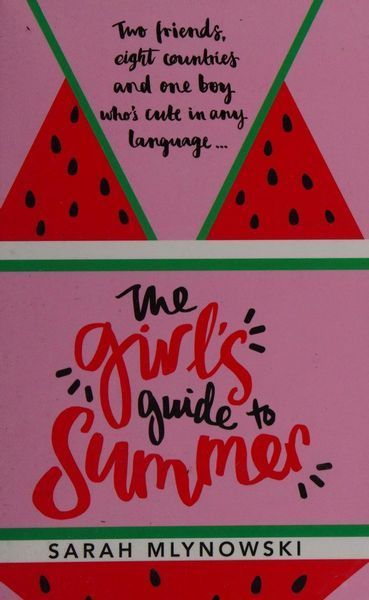 Two friends,
eight countries
and one boy
who's cute in any
language...
The
girl's
guide to
Summer
SARAH MLYNOWSKI